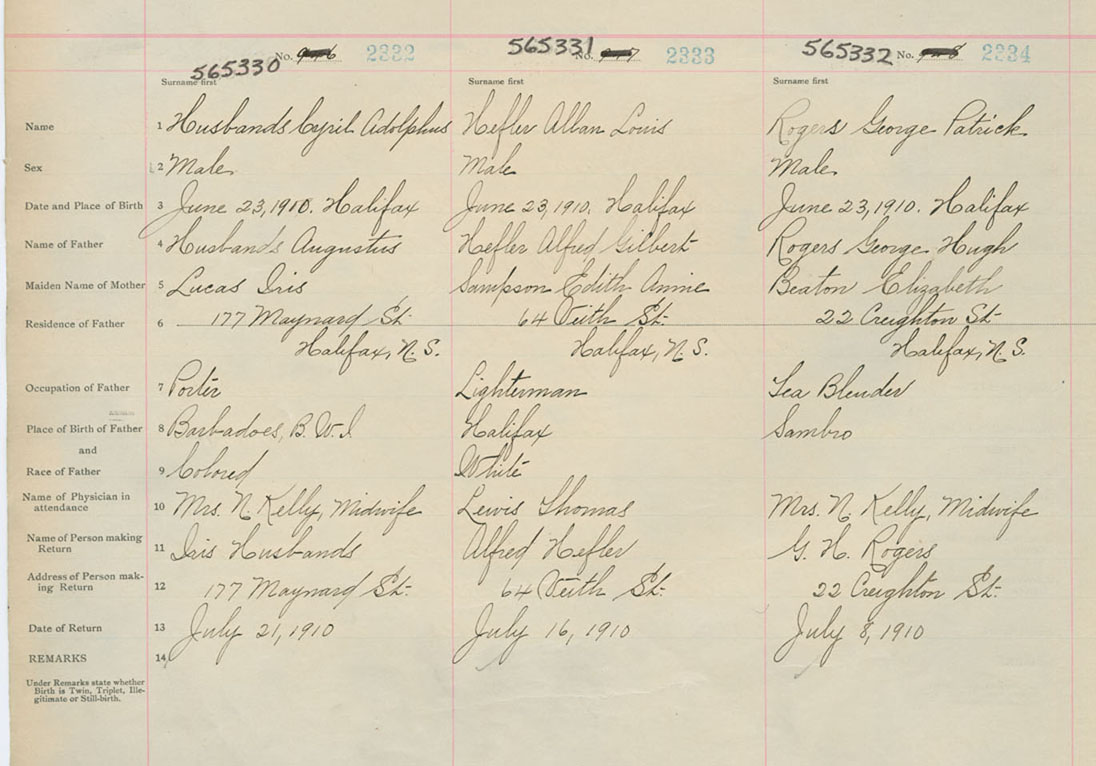 565330 No. 2332 565331 No. 2333 565332 No. 2334
Surname first Surname first Surname first
Name 1 Husbands Cyril Adolphus Hefler Alban Louis Rogers George Patrick
Sex 2 Male Male Male
Date and Place of Birth 3 June 23, 1910. Halifax June 23, 1910. Halifax June 23, 1910. Halifax
Name of Father 4 Husbands Augustus Hefler Alfred Gilbert Rogers George Hugh
Maiden Name of Mother 5 Lucas Iris Sampson Edith Annie Beaton Elizabeth
Residence of Father 6 177 Maynard St. 64 Veith St. 22 Creighton St.
Halifax, N.S. Halifax, N.S. Halifax, N.S.
Occupation of Father 7 Porter Lighterman Tea Blender
Place of Birth of Father 8 Barbadoes, B.W.I. Halifax Sambro
and
Race of Father 9 Colored White
Name of Physician in
attendance 10 Mrs. N. Kelly, Midwife Lewis Thomas Mrs. N. Kelly, Midwife
Name of Person making
Return 11 Iris Husbands Alfred Hefler G. H. Rogers
Address of Person mak-
ing Return 12 177 Maynard St. 64 Veith St. 22 Creighton St.
Date of Return 13 July 21, 1910 July 16, 1910 July 8, 1910
REMARKS 14
Under Remarks state whether
Birth is Twin, Triplet, Ille-
gitimate or Still-birth.